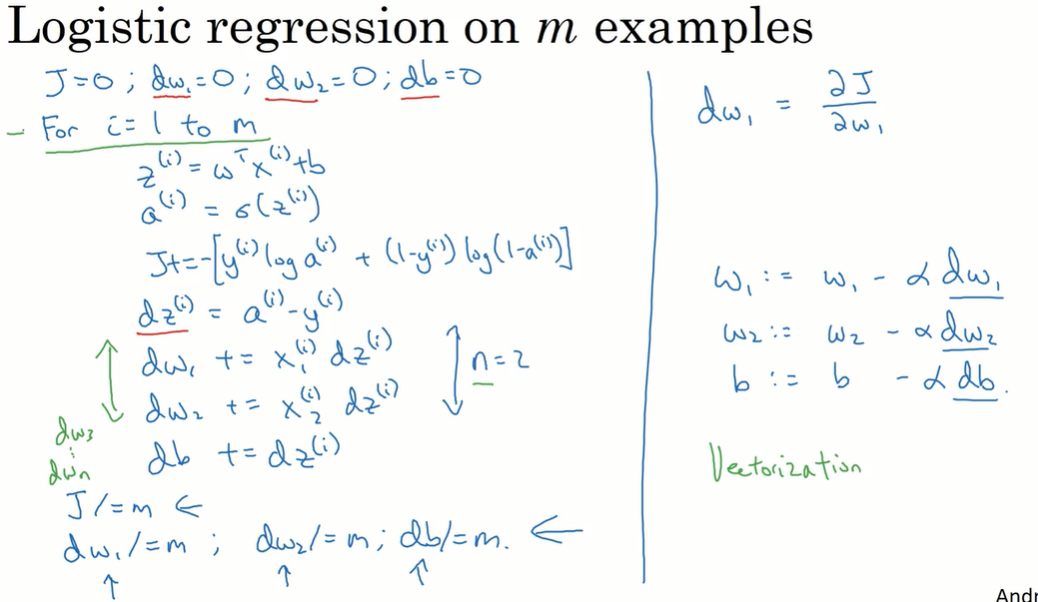 Logistic regression on m examples
J=0 ; dw₁=0 ; dw₂=0 ; db=0
For i=1 to m
z⁽ⁱ⁾ = wᵀx⁽ⁱ⁾+b
a⁽ⁱ⁾ = σ(z⁽ⁱ⁾)
J+=-[y⁽ⁱ⁾ log a⁽ⁱ⁾ + (1-y⁽ⁱ⁾) log(1-a⁽ⁱ⁾)]
dz⁽ⁱ⁾ = a⁽ⁱ⁾-y⁽ⁱ⁾
dw₁ += x₁⁽ⁱ⁾ dz⁽ⁱ⁾
dw₂ += x₂⁽ⁱ⁾ dz⁽ⁱ⁾
n=2
db += dz⁽ⁱ⁾
dw₃
⋮
dwₙ
J/=m ←
dw₁/=m ; dw₂/=m ; db/=m. ←
dw₁ = ∂J/∂w₁
w₁ := w₁ - α dw₁
w₂ := w₂ - α dw₂
b := b - α db.
Vectorization
Andr